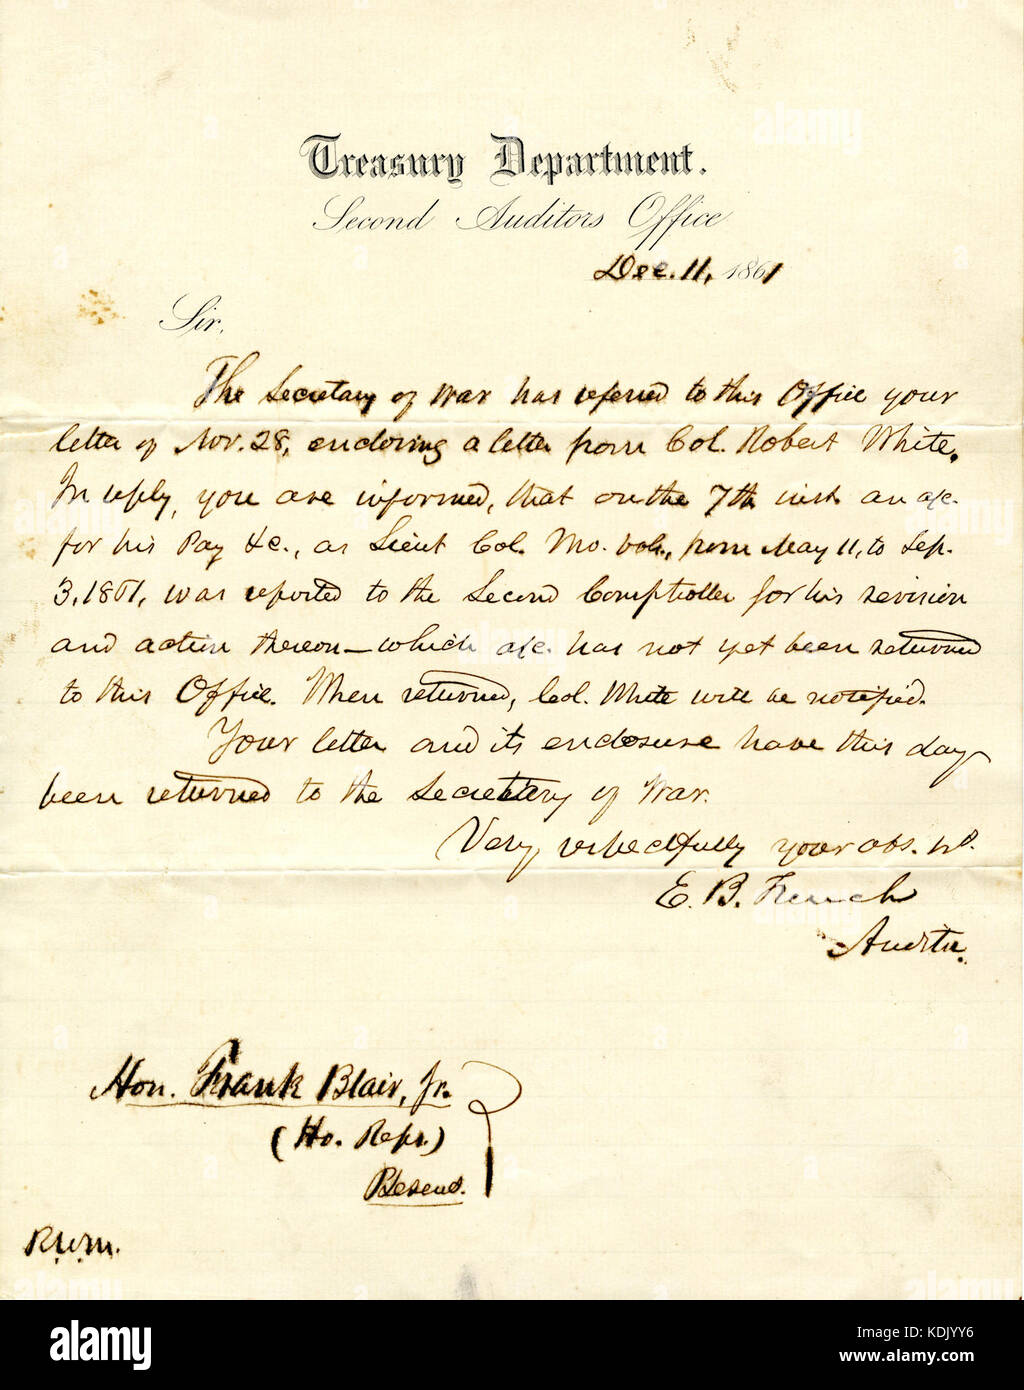 Treasury Department.
Second Auditors Office
Dec. 11, 1861
Sir,
The Secretary of War has referred to this Office your
letter of Nov. 28, enclosing a letter from Col. Robert White.
In reply, you are informed, that on the 7th inst. an a/c.
for his Pay &c., as Lieut Col. Mo. Vols., from May 11, to Sep.
3, 1861, was reported to the Second Comptroller for his revision
and action thereon — which a/c. has not yet been returned
to this Office. When returned, Col. White will be notified.
Your letter and its enclosure have this day
been returned to the Secretary of War.
Very respectfully your obs. st.
E. B. French
Auditor.
Hon. Frank Blair, Jr.
(Ho. Repr.)
Present.
R.W.M.
alamy
Image ID: KDJYY6
www.alamy.com